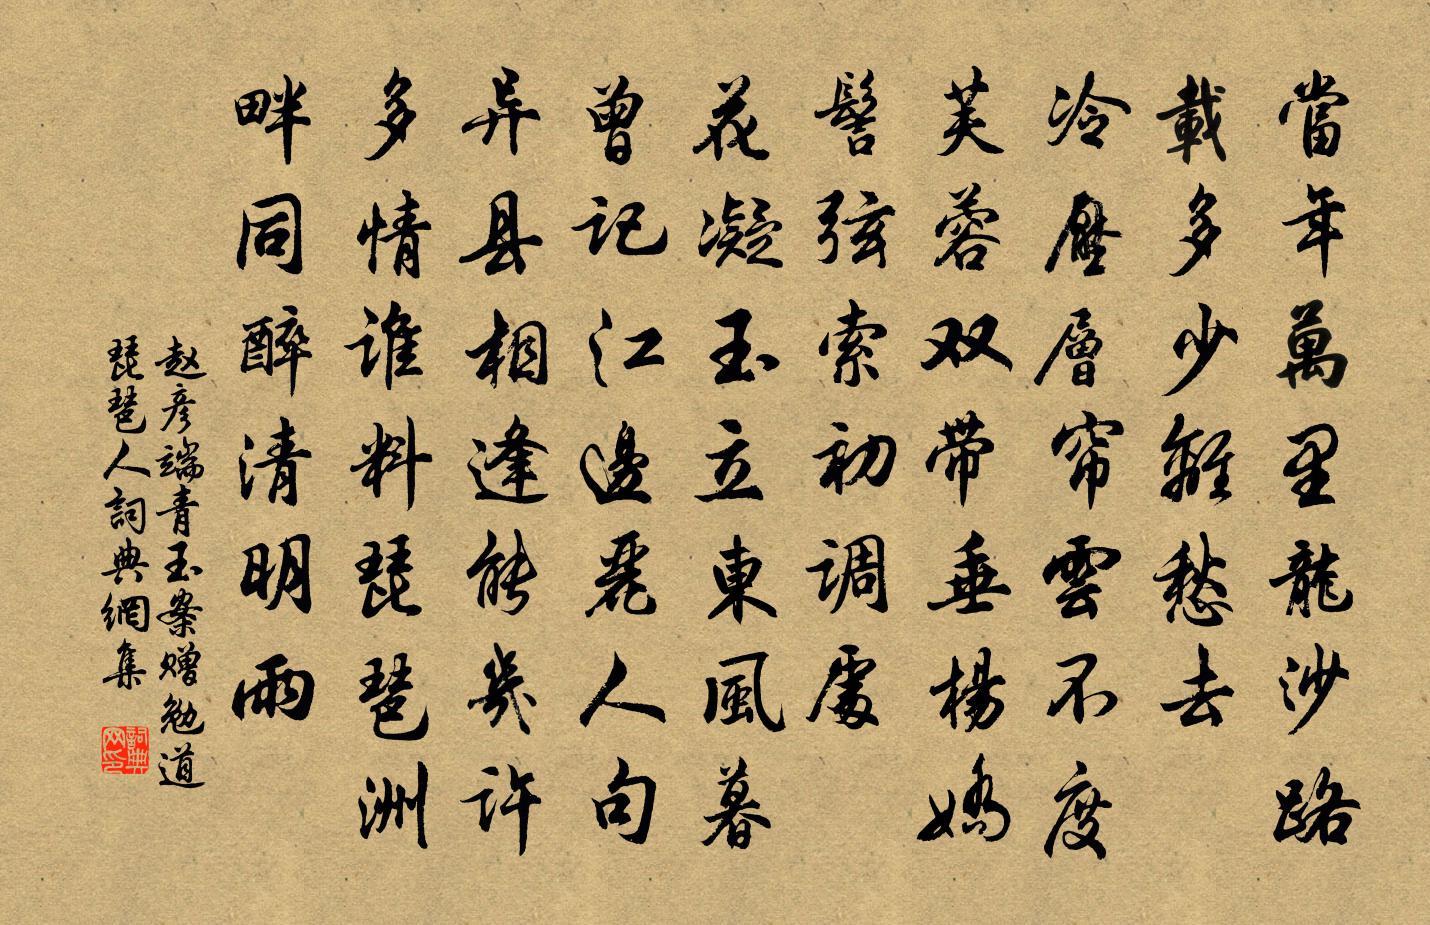 當年萬里龍沙路
載多少離愁去
冷壓層帘雲不度
芙蓉双带垂楊嬌
髻弦索初调處
花凝玉立東風暮
曾记江邊麗人句
异县相逢能幾许
多情谁料琵琶洲
畔同醉清明雨
赵彦端青玉案赠勉道
琵琶人詞典網集
詞典网印